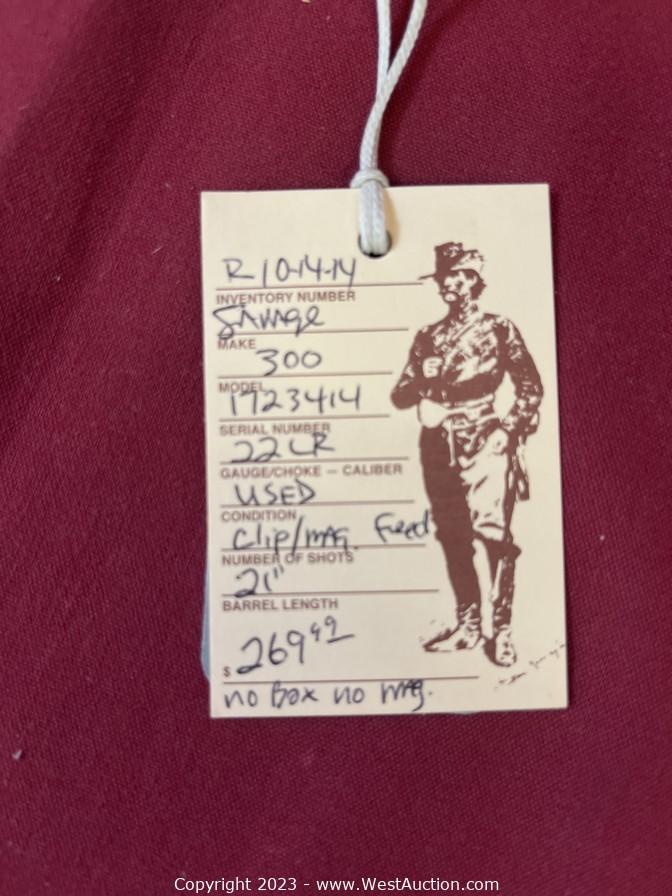 R 10-14-14
INVENTORY NUMBER
Savage
MAKE
300
MODEL
1723414
SERIAL NUMBER
22 LR
GAUGE/CHOKE — CALIBER
USED
CONDITION
Clip/mag. Feed
NUMBER OF SHOTS
21"
BARREL LENGTH
$ 269 49
no Box no mag.
Copyright 2023 - www.WestAuction.com